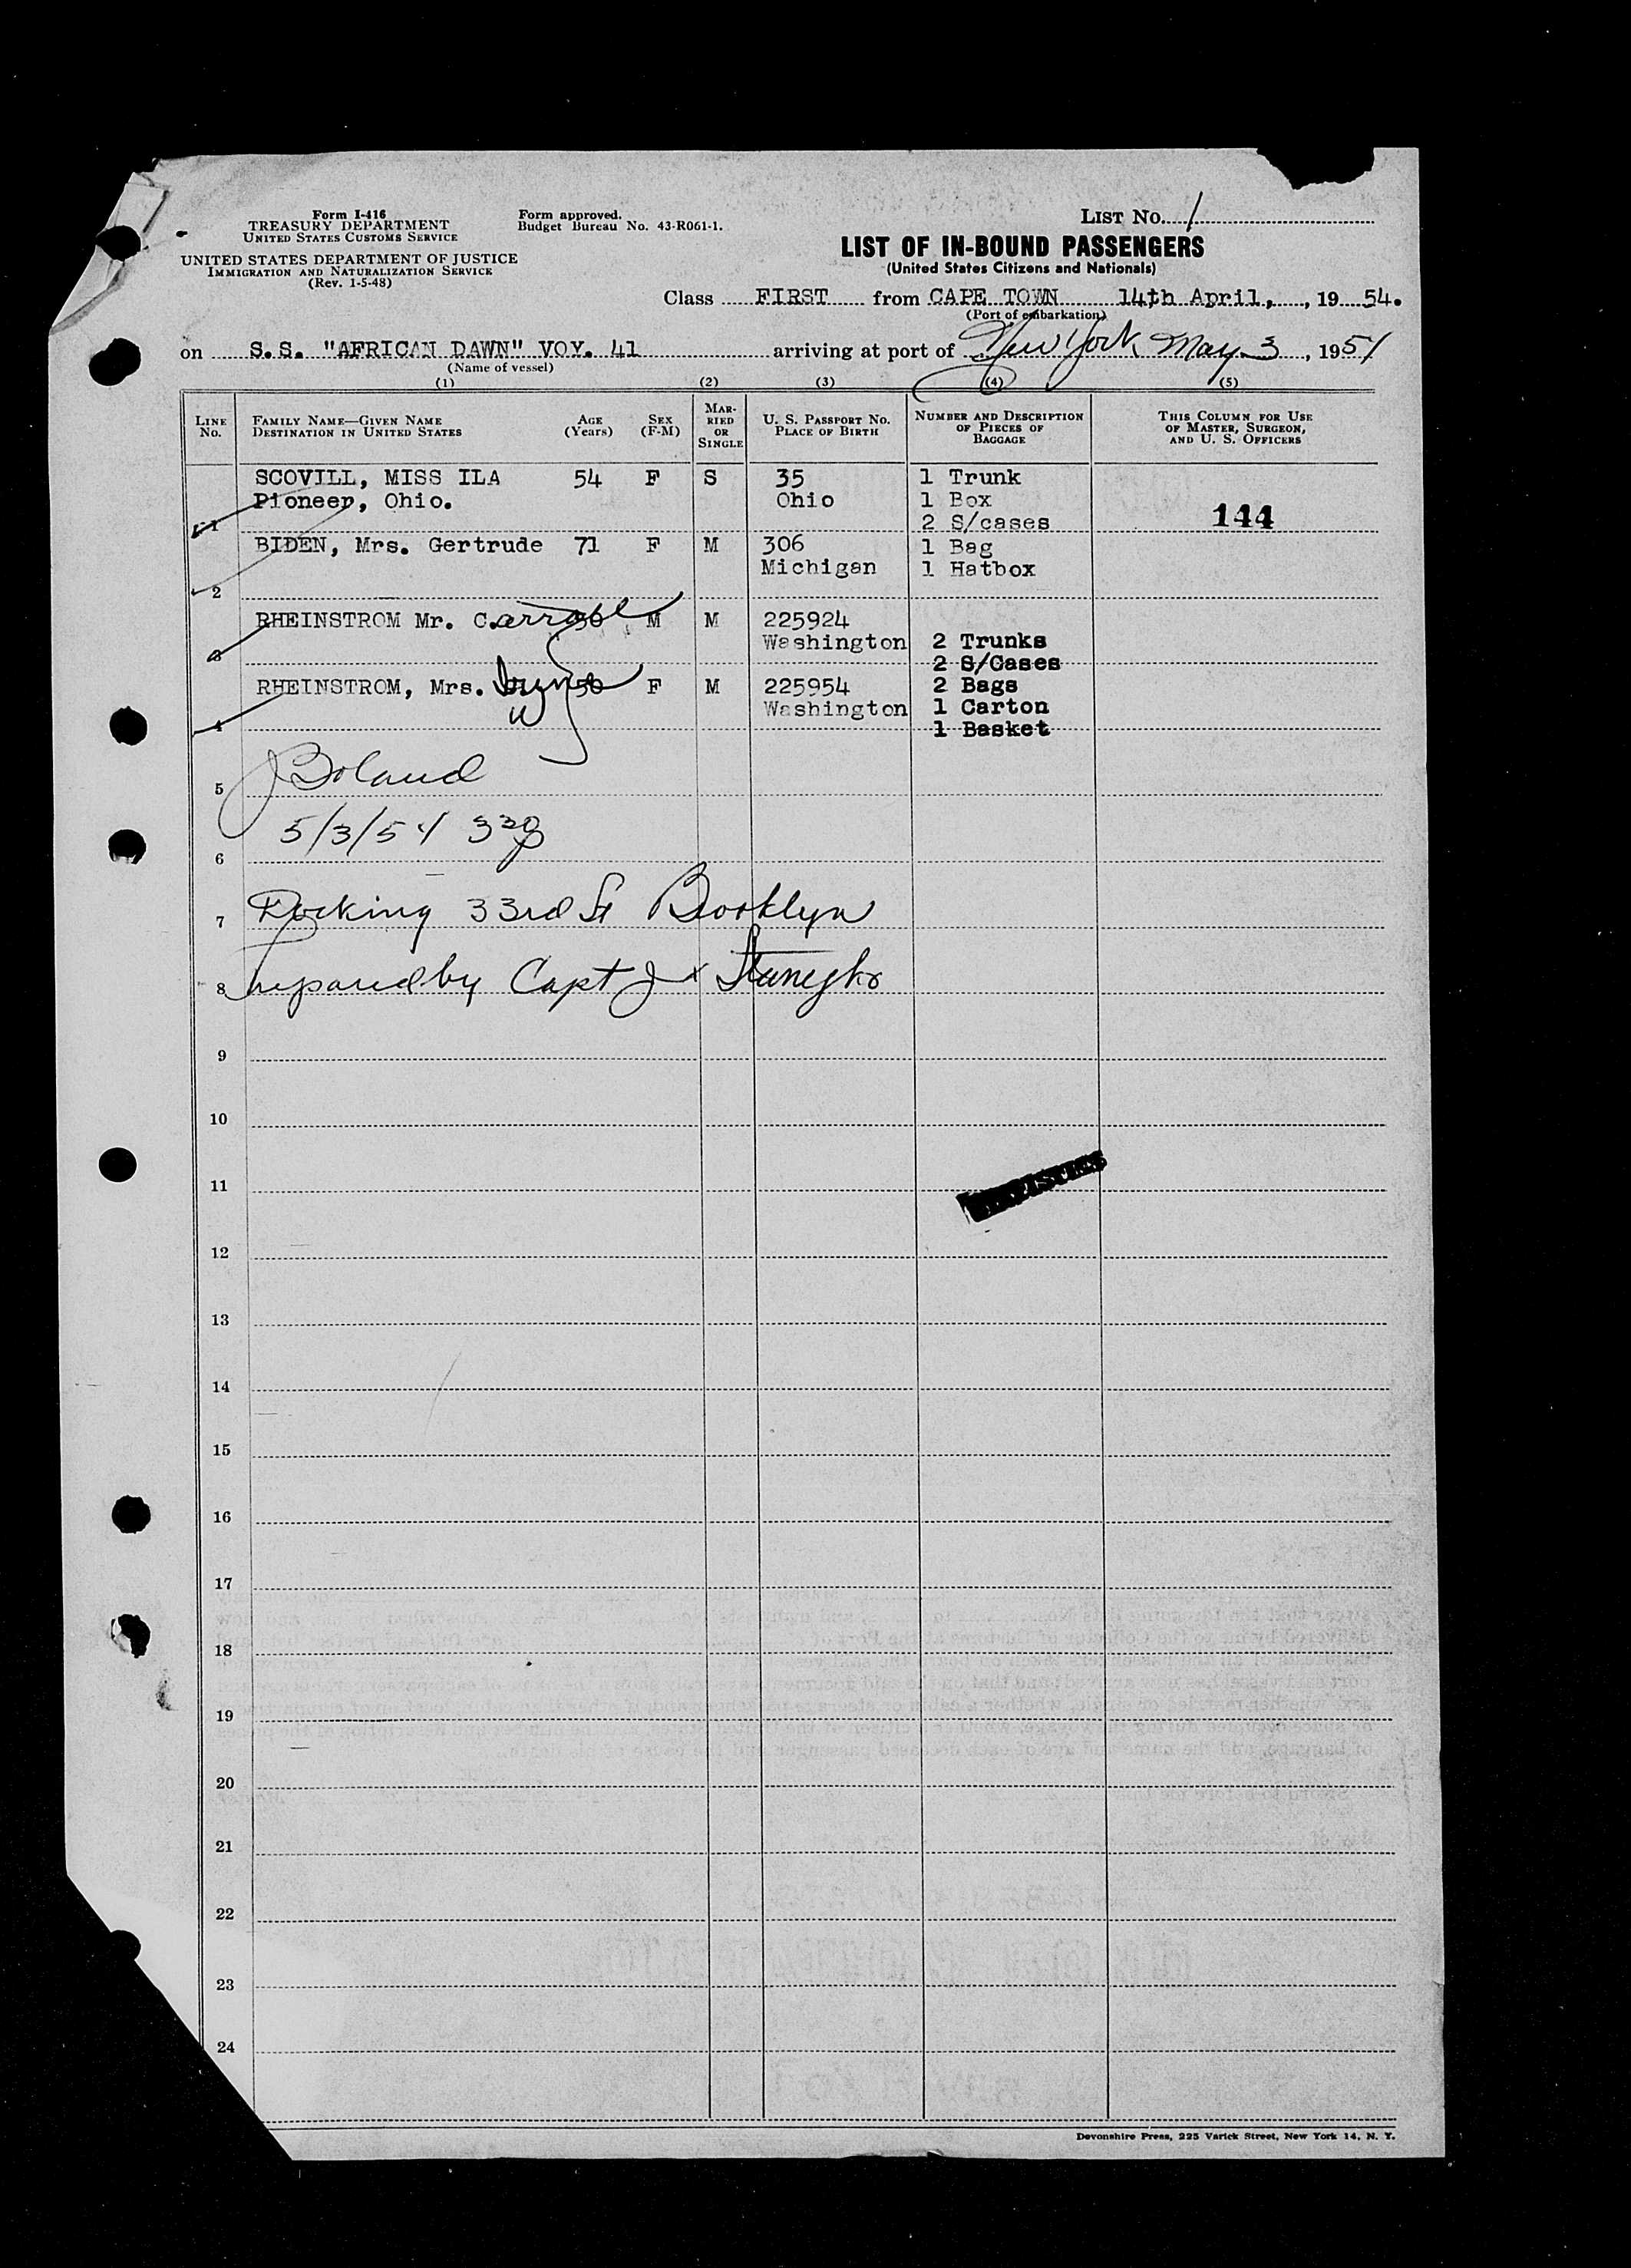 Form I-416
TREASURY DEPARTMENT
UNITED STATES CUSTOMS SERVICE
UNITED STATES DEPARTMENT OF JUSTICE
IMMIGRATION AND NATURALIZATION SERVICE
(Rev. 1-5-48)
Form approved.
Budget Bureau No. 43-R061-1.
LIST No. 1
LIST OF IN-BOUND PASSENGERS
(United States Citizens and Nationals)
Class FIRST from CAPE TOWN 14th April, , 19 54.
(Port of embarkation)
on S.S. "AFRICAN DAWN" VOY. 41 arriving at port of New York May 3, 1954
(Name of vessel)
(1) (2) (3) (4) (5)
LINE No. FAMILY NAME—GIVEN NAME DESTINATION IN UNITED STATES AGE (Years) SEX (F-M) MARRIED OR SINGLE U. S. PASSPORT No. PLACE OF BIRTH NUMBER AND DESCRIPTION OF PIECES OF BAGGAGE THIS COLUMN FOR USE OF MASTER, SURGEON, AND U. S. OFFICERS
SCOVILL, MISS ILA 54 F S 35 1 Trunk
Pioneer, Ohio. Ohio 1 Box
1 2 S/cases 144
BIDEN, Mrs. Gertrude 71 F M 306 1 Bag
Michigan 1 Hatbox
2
RHEINSTROM Mr. Carroll M M 225924
Washington 2 Trunks
3 2 S/Cases
RHEINSTROM, Mrs. F M 225954 2 Bags
Washington 1 Carton
4 1 Basket
J Boland
5
5/3/54 3 30 p
6
7 Docking 33rd St Brooklyn
8 prepared by Capt J
9
10
11
12
13
14
15
16
17
18
19
20
21
22
23
24
Devonshire Press, 225 Varick Street, New York 14, N. Y.